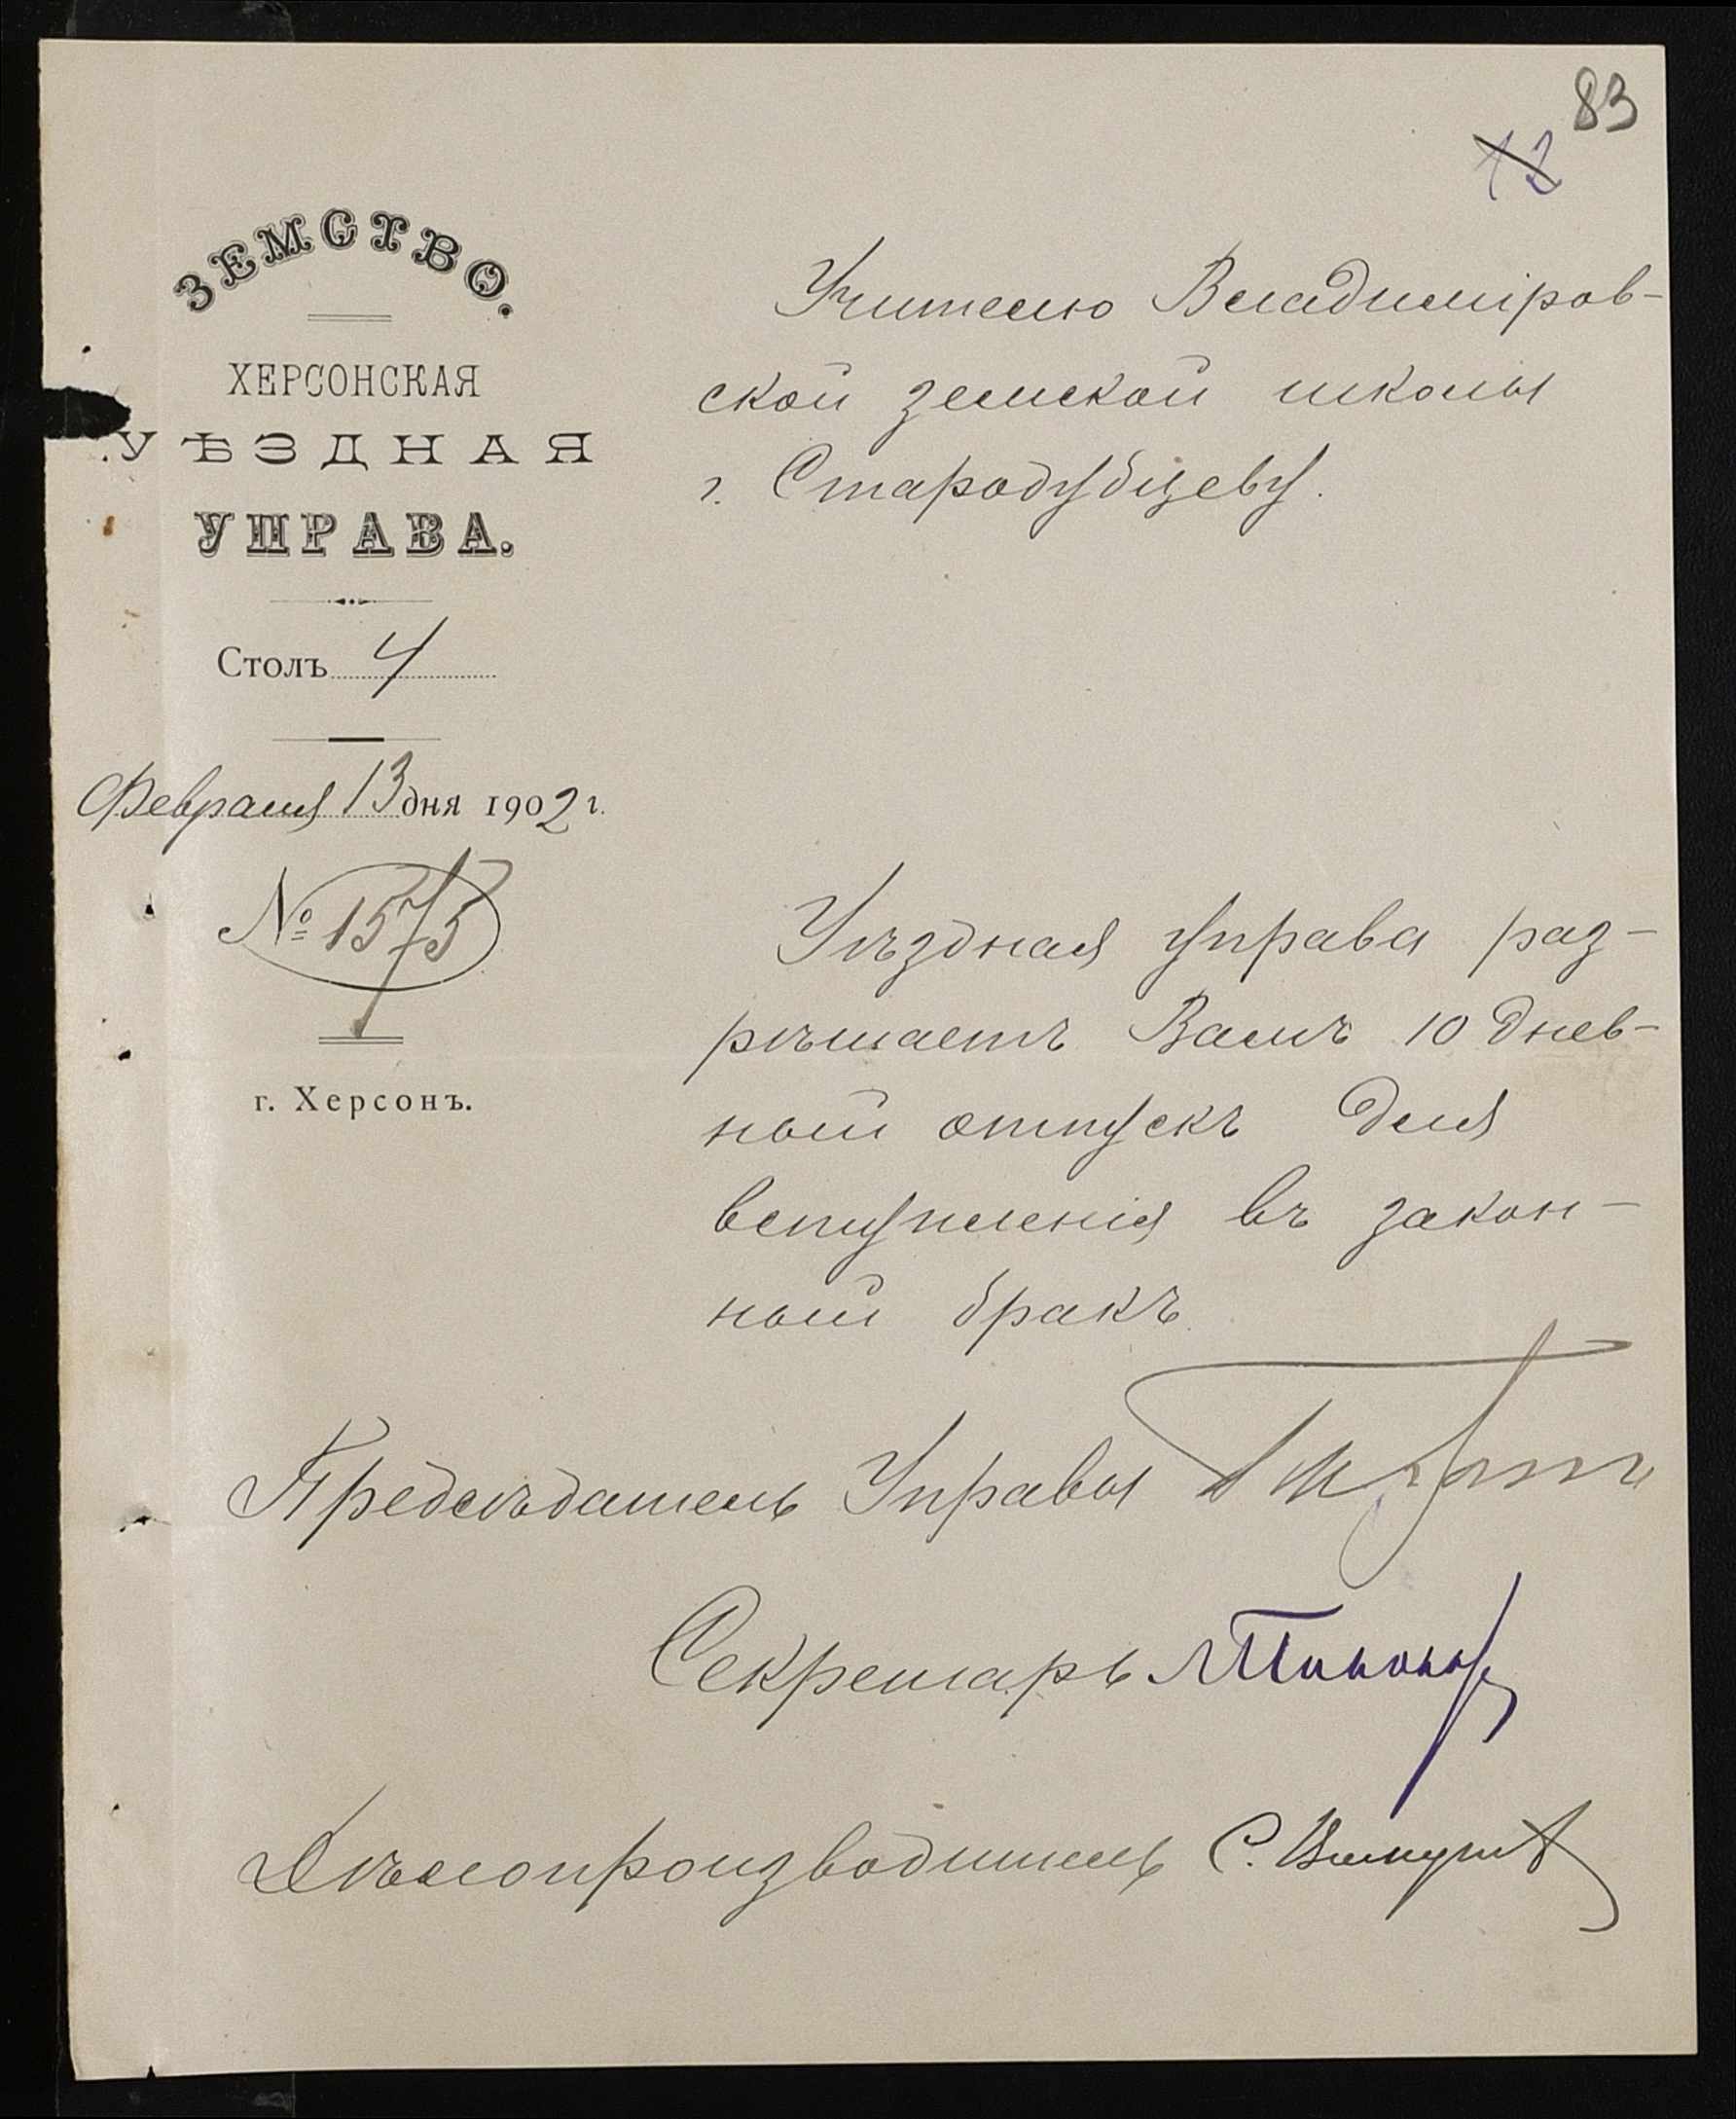 83
12
ЗЕМСТВО.
ХЕРСОНСКАЯ
УѢЗДНАЯ
УПРАВА.
Столъ 4
Февраля 13 дня 1902 г.
№ 1575
г. Херсонъ.
Учителю Владиміров-
ской земской школы
г. Стародубцеву.
Уѣздная управа раз-
рѣшаетъ Вамъ 10 днев-
ный отпускъ для
вступленія въ закон-
ный бракъ.
Предсѣдатель Управы
Секретарь
Дѣлопроизводитель С.